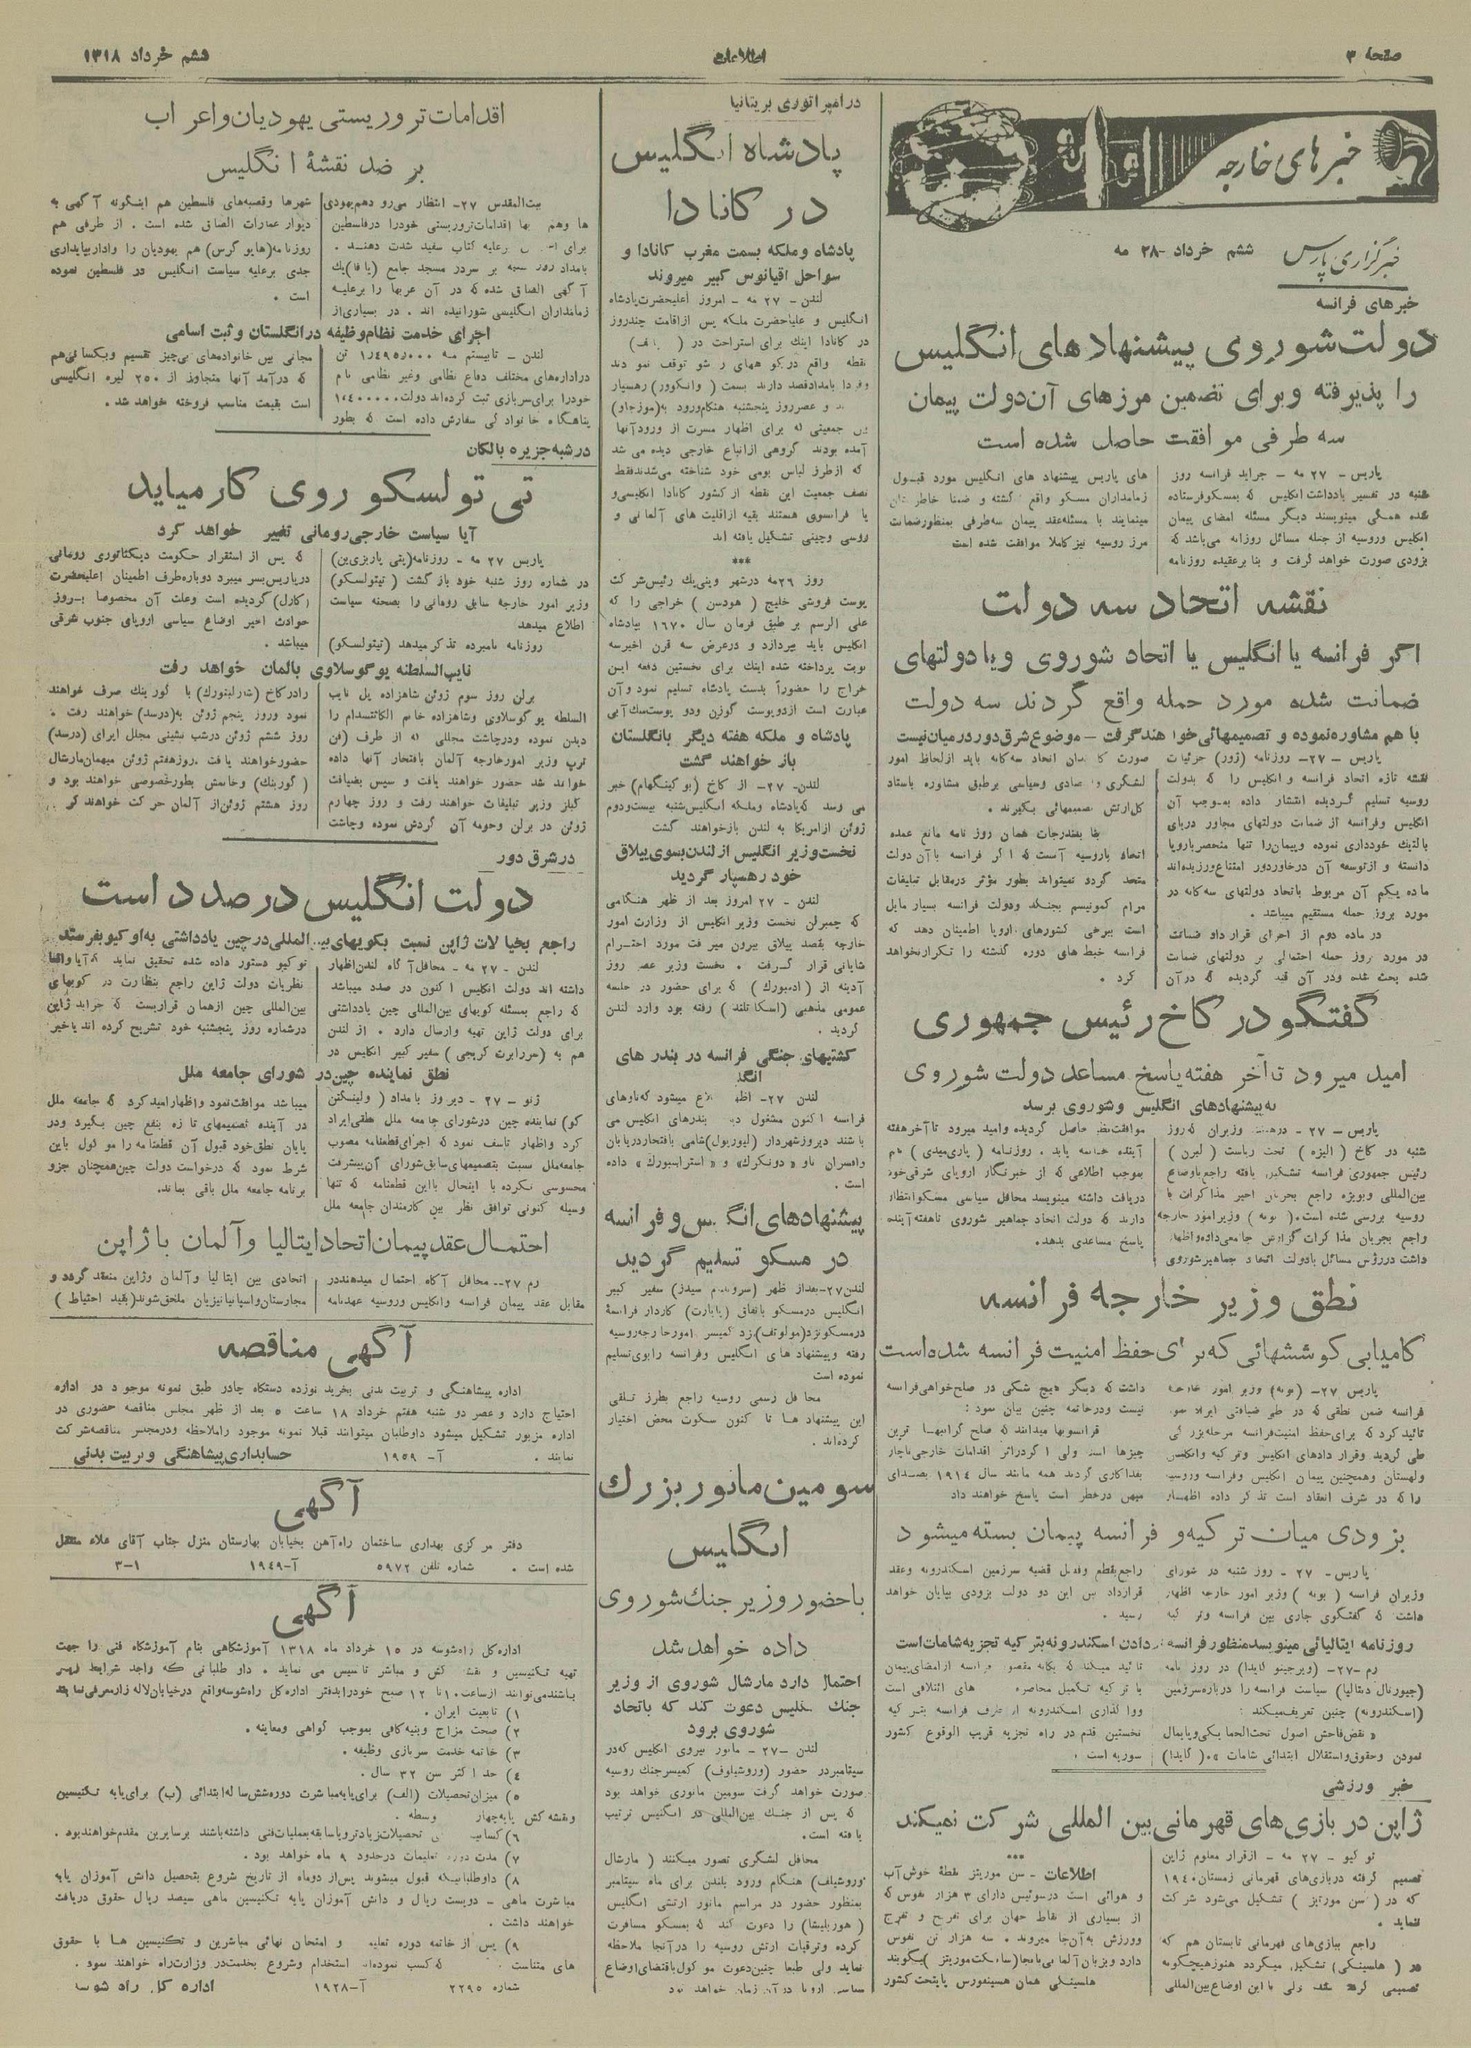 صفحه ۳
اطلاعات
ششم خرداد ۱۳۱۸
خبرهای خارجه
خبرگزاری پارس
ششم خرداد -۲۸ مه
خبرهای فرانسه
دولت شوروی پیشنهادهای انگلیس
را پذیرفته و برای تضمین مرزهای آن دولت پیمان
سه طرفی موافقت حاصل شده است
پاریس - ۲۷ مه - جراید فرانسه روز
شنبه در تفسیر یادداشت انگلیس که بمسکو فرستاده
شده همگی مینویسند دیگر مسئله امضای پیمان
انگلیس وروسیه از جمله مسائل روزانه می‌باشد که
بزودی صورت خواهد گرفت و بنا بر عقیده روزنامه
های پاریس پیشنهاد های انگلیس مورد قبول
زمامداران مسکو واقع گشته و ضمنا خاطر نشان
مینمایند با مسئله عقد پیمان سه‌طرفی بمنظور ضمانت
مرز روسیه نیز کاملا موافقت شده است
نقشه اتحاد سه دولت
اگر فرانسه یا انگلیس یا اتحاد شوروی ویا دولتهای
ضمانت شده مورد حمله واقع گردند سه دولت
با هم مشاوره نموده و تصمیمهائی خواهند گرفت - موضوع شرق دور در میان نیست
پاریس - ۲۷- روزنامه (زور) جزئیات
نقشه تازه اتحاد فرانسه و انگلیس را که بدولت
روسیه تسلیم گردیده انتشار داده بموجب آن
انگلیس وفرانسه از ضمانت دولتهای مجاور دریای
بالتیك خودداری نموده وپیمان را تنها منحصر باروپا
دانسته و ازتوسعه آن درخاوردور امتناع ورزیده‌اند
ماده یکم آن مربوط باتحاد دولتهای سه گانه در
مورد بروز حمله مستقیم میباشد .
در ماده دوم از اجرای قرار داد ضمانت
در مورد روز حمله احتمالی بر دولتهای ضمانت
شده بحث شده ودر آن قید گردیده که در آن
صورت اتحاد سه گانه باید ازلحاظ امور
لشگری و وسیاسی برطبق مشاوره باستاد
کل ارتش تصمیمهائی بگیرند .
بنا بمندرجات همان روز نامه مانع عمده
اتحاد باروسیه آنست که اگر فرانسه باآن دولت
متحد گردد نمیتواند بطور مؤثر درمقابل تبلیغات
مرام کمونیسم بجنگد ودولت فرانسه بسیار مایل
است ببرخی کشورهای اروپا اطمینان دهد که
فرانسه خبط های دوره گذشته را تکرار نخواهد
کرد .
گفتگو در کاخ رئیس جمهوری
امید میرود تا آخر هفته پاسخ مساعد دولت شوروی
به پیشنهادهای انگلیس و شوروی برسد
پاریس - ۲۷ - وزیران که روز
شنبه در کاخ ( الیزه ) تحت ریاست ( لبرن )
رئیس جمهوری فرانسه تشکیل یافته راجع باوضاع
بین‌المللی وبویژه راجع بجریان اخیر مذاکرات با
روسیه بررسی شده است. ( بونه ) وزیر امور خارجه
راجع بجریان مذاکرات گزارش جامعی داده و اظهار
داشت درروش مسائل بادولت اتحاد جماهیر شوروی
موافقت نظر حاصل گردیده وامید میرود تاآخر هفته
آینده خاتمه یابد . روزنامه ( پاری‌میدی ) هم
بموجب اطلاعی که از خبر نگار اروپای شرقی خود
دریافت داشته مینویسد محافل سیاسی مسکو انتظار
دارند که دولت اتحاد جماهیر شوروی تاهفته آینده
پاسخ مساعدی بدهد.
نطق وزیر خارجه فرانسه
کامیابی کوششهائی که برای حفظ امنیت فرانسه شده است
پاریس -۲۷- (بونه) وزیر امور خارجه
فرانسه ضمن نطقی که در طی ضیافتی ایراد نمود
تائید کرد که برای حفظ امنیت فرانسه مرحله بزرگی
طی گردید وقرار دادهای انگلیس وترکیه وانگلیس
ولهستان وهمچنین پیمان انگلیس وفرانسه وروسیه
را که در شرف انعقاد است تذکر داده اظهار
داشت که دیگر هیچ شکی در صلح خواهی فرانسه
نیست ودرخاتمه چنین بیان نمود :
فرانسویها میدانند که صلح گرانبها ترین
چیزها است ولی اگر در اثر اقدامات خارجی ناچار
بفداکاری گردند همه مانند سال ۱۹۱٤ بصدای
میهن درخطر است پاسخ خواهند داد
بزودی میان ترکیه و فرانسه پیمان بسته میشود
پاریس - ۲۷ - روز شنبه در شورای
وزیران فرانسه ( بونه ) وزیر امور خارجه اظهار
داشت که گفتگوی جاری بین فرانسه وترکیه
راجع بقطع وفصل قضیه سرزمین اسکندرونه وعقد
قرارداد بین این دو دولت بزودی بپایان خواهد
رسید .
روزنامه ایتالیائی مینویسد منظور فرانسه از دادن اسکندرونه بترکیه تجزیه شامات است
رم -۲۷- (ویرجینو گایدا) در روز نامه
(جیورنال دیتالیا) سیاست فرانسه را درباره سرزمین
(اسکندرونه) چنین تعریف میکند :
« نقض فاحش اصول تحت‌الحمایگی وپایمال
نمودن وحقوق واستقلال ابتدائی شامات ». ( گایدا )
تائید میکند که یگانه مقصود فرانسه از امضای پیمان
با ترکیه تکمیل محاصره های ائتلافی است
ووا گذاری اسکندرونه از طرف فرانسه بترکیه
نخستین قدم در راه تجزیه قریب الوقوع کشور
سوریه است .
خبر ورزشی
ژاپن در بازی‌های قهرمانی بین المللی شرکت نمیکند
توکیو - ۲۷ مه - ازقرار معلوم ژاپن
تصمیم گرفته دربازی‌های قهرمانی زمستان ۱۹٤۰
که در ( سن موریتز ) تشکیل می‌شود شرکت
ننماید .
راجع ببازی‌های قهرمانی تابستان هم که
در ( هلسینکی) تشکیل میگردد هنوز هیچگونه
تصمیمی گرفته نشده ولی با این اوضاع بین‌المللی
***
اطلاعات - سن موریتز نقطهٔ خوش آب
و هوائی است درسوئیس دارای ۳ هزار نفوس که
از بسیاری از نقاط جهان برای تفریح و تفرج
وورزش به‌آنجا میروند . سه هزار تن نفوس
دارد وبزبان آلمانی بآنجا(سانکت موریتز ) میگویند
هلسینکی همان هلسینفورس پایتخت کشور
در امپراتوری بریتانیا
پادشاه انگلیس
در کانادا
پادشاه وملکه بسمت مغرب کانادا و
سواحل اقیانوس کبیر میروند
لندن - ۲۷ مه - امروز اعلیحضرت پادشاه
انگلیس و علیاحضرت ملکه پس ازاقامت چندروز
در کانادا اینك برای استراحت در
نقطه واقع در کوه‌های رشو توقف نمودند
وفردا بامدادقصد دارند بسمت ( وانکوور) رهسپار
و عصرروز پنجشنبه هنگام ورود به(موزجاو)
جمعیتی که برای اظهار مسرت از ورودآنها
آمده بودند گروهی ازاتباع خارجی دیده می شد
که ازطرز لباس بومی خود شناخته می‌شدند فقط
نصف جمعیت این نقطه از کشور کانادا انگلیسی‌و
یا فرانسوی هستند بقیه ازاقلیت های آلمانی و
روسی وچینی تشکیل یافته اند
***
روز ۲٦مه درشهر وینی‌پك رئیس شرکت
پوست فروشی خلیج ( هودسن ) خراجی را که
علی الرسم بر طبق فرمان سال ۱٦۷۰ بپادشاه
انگلیس باید بپردازد و درعرض سه قرن اخیر سه
نوبت پرداخته شده اینك برای نخستین دفعه این
خراج را حضوراً بدست پادشاه تسلیم نمود و آن
عبارت است ازدوپوست گوزن ودو پوست سك آبی
پادشاه و ملکه هفته دیگر بانگلستان
باز خواهند گشت
لندن- ۲۷- از کاخ (بوکینگهام) خبر
می رسد که‌پادشاه وملکه انگلیس شنبه بیست‌و دوم
ژوئن ازامریکا به لندن بازخواهند گشت
نخست وزیر انگلیس از لندن بسوی ییلاق
خود رهسپار گردید
لندن - ۲۷ امروز بعد از ظهر هنگامی
که چمبرلن نخست وزیر انگلیس از وزارت امور
خارجه بقصد ییلاق بیرون میرفت مورد احترام
شایانی قرار گرفت . نخست وزیر عصر روز
آدینه از (ادمبورك) که برای حضور در جلسه
عمومی مذهبی (اسکاتلند) رفته بود وارد لندن
گردید .
کشتیهای جنگی فرانسه در بندر های
لندن ۲۷- میشود که‌ناوهای
فرانسه اکنون مشغول بندرهای انگلیس می
باشند دیروز شهردار (لیورپول)شامی بافتخاردریابان
وافسران ناو « دونکرك» و « استراسبورك» داده
است .
پیشنهادهای انگلیس و فرانسه
در مسکو تسلیم گردید
لندن ۲۷-بعداز ظهر (سرویلیام سیدز) سفیر کبیر
انگلیس درمسکو باتفاق (پایارت) کاردار فرانسه
درمسکونزد(مولوتف)نزد کمیسر امورخارجه‌روسیه
رفته وپیشنهاد های انگلیس وفرانسه رابوی تسلیم
نموده است
محافل رسمی روسیه راجع بطرز تلقی
این پیشنهاد ها تا کنون سکوت محض اختیار
کرده‌اند .
سومین مانور بزرك
انگلیس
با حضور وزیر جنك شوروی
داده خواهد شد
احتمال دارد مارشال شوروی از وزیر
جنك انگلیس دعوت کند که باتحاد
شوروی برود
لندن - ۲۷- مانور نیروی انگلیس که‌در
سپتامبر در حضور (وروشیلوف) کمیسر جنك روسیه
صورت خواهد گرفت سومین مانوری خواهد بود
که پس از جنك بین‌المللی در انگلیس ترتیب
یافته است.
محافل لشگری تصور میکنند ( مارشال
وروشیلف) هنگام ورود بلندن برای ماه سپتامبر
بمنظور حضور در مراسم مانور ارتشی انگلیس
( هوربلیشا) را دعوت کند که بمسکو مسافرت
کرده وترقیات ارتش روسیه را درآنجا ملاحظه
نماید ولی طبعا چنین‌دعوت موکول باقتضای اوضاع
سیاسی اروپا در آن زمان خواهد بود
اقدامات تروریستی یهودیان و اعراب
بر ضد نقشهٔ انگلیس
بیت‌المقدس ۲۷- انتظار می‌رود هم‌یهودی
ها وهم اقدامات تروریستی خودرا درفلسطین
برای برعلیه کتاب سفید شدت دهند .
بامداد روز شنبه بر سردر مسجد جامع (یافا)یك
آگهی الصاق شده که در آن عربها را برعلیه
زمامداران انگلیسی شورانیده اند . در بسیاری‌از
شهرها وقصبه‌های فلسطین هم اینگونه آگهی به
دیوار عمارات الصاق شده است . از طرفی هم
روزنامه(هایوگرس) هم یهودیان را وادارببایداری
جدی برعلیه سیاست انگلیس در فلسطین نموده
است .
اجرای خدمت نظام وظیفه در انگلستان و ثبت اسامی
لندن - تابیستم مه ۱٫٤۹٥٫۰۰۰ تن
در اداره‌های مختلف دفاع نظامی وغیر نظامی نام
خودرا برای سربازی ثبت کرده‌اند دولت ۱٫٤۰۰۰۰۰
پناهگاه خانوادگی سفارش داده است که بطور
مجانی بین خانواده‌های بی‌چیز تقسیم وبکسانی‌هم
که درآمد آنها متجاوز از ۲٥۰ لیره انگلیسی
است بقیمت مناسب فروخته خواهد شد .
در شبه جزیره بالکان
تی‌تولسکو روی کار میاید
آیا سیاست خارجی رومانی تغییر خواهد کرد
پاریس ۲۷ مه - روزنامه(پتی پاریزین)
در شماره روز شنبه خود بازگشت ( تیتولسکو)
وزیر امور خارجه سابق رومانی را بصحنه سیاست
اطلاع میدهد
روزنامه نامبرده تذکر میدهد (تیتولسکو)
که پس از استقرار حکومت دیکتاتوری رومانی
درپاریس بسر میبرد دوباره طرف اطمینان اعلیحضرت
(کارل) گردیده است وعلت آن مخصوصا بروز
حوادث اخیر اوضاع سیاسی اروپای جنوب شرقی
میباشد .
نایب السلطنه یوگوسلاوی بالمان خواهد رفت
برلن روز سوم ژوئن شاهزاده پل نایب
السلطه یوگوسلاوی وشاهزاده خانم الکائتسدام را
دیدن نموده ودرچاشت مجللی که از طرف (فن
ترپ وزیر امورخارجه آلمان بافتخار آنها داده
خواهد شد حضور خواهند یافت و سپس بضیافت
گبلز وزیر تبلیغات خواهند رفت و روز چهارم
ژوئن در برلن وحومه آن گردش نموده وچاشت
رادرکاخ (شارلتنبورك) با گورینك صرف خواهند
نمود وروز پنجم ژوئن به(درسد) خواهند رفت .
روز ششم ژوئن درشب نشینی مجلل اپرای (درسد)
حضورخواهند یافت . روزهفتم ژوئن میهمان‌مارشال
( گورینك) وخانمش بطورخصوصی خواهند بود و
روز هشتم ژوئن‌از آلمان حرکت خواهند کرد
در شرق دور
دولت انگلیس در صدد است
راجع بخیالات ژاپن نسبت بکویهای بین المللی در چین یادداشتی به او کیو بفرستد
لندن - ۲۷ مه - محافل آگاه لندن‌اظهار
داشته اند دولت انگلیس اکنون در صدد میباشد
که راجع بمسئله کویهای بین‌المللی چین یادداشتی
برای دولت ژاپن تهیه وارسال دارد . از لندن
هم به (سررابرت کریجی) سفیر کبیر انگلیس در
توکیو دستور داده شده تحقیق نماید که‌آیا واقعا
نظریات دولت ژاپن راجع بنظارت در کویهای
بین‌المللی چین ازهمان قراریست که جراید ژاپن
درشماره روز پنجشنبه خود تشریح کرده اند یاخیر
نطق نماینده چین در شورای جامعه ملل
ژنو - ۲۷ - دیروز بامداد ( ولینگتن
کو) نماینده چین درشورای جامعه ملل نطقی ایراد
کرد واظهار تاسف نمود که اجرای‌قطعنامه مصوب
جامعه‌ملل نسبت بتصمیمهای سابق شورای آن پیشرفت
محسوسی نکرده با اینحال بااین قطعنامه که تنها
وسیله کنونی توافق نظر بین کارمندان جامعه ملل
میباشد موافقت‌نمود واظهارامیدکرد که جامعه ملل
در آینده تصمیمهای تازه بنفع چین بگیرد ودر
پایان نطق‌خود قبول آن قطعنامه را موکول باین
شرط نمود که درخواست دولت چین‌همچنان جزو
برنامه جامعه ملل باقی بماند.
احتمال عقد پیمان اتحاد ایتالیا و آلمان با ژاپن
رم ۲۷-- محافل آگاه احتمال میدهند در
مقابل عقد پیمان فرانسه وانگلیس وروسیه عهدنامه
اتحادی بین ایتالیا وآلمان وژاپن منعقد گردد و
مجارستان‌واسپانیا نیزبان ملحق شوند(بقید احتیاط )
آگهی مناقصه
اداره پیشاهنگی و تربیت بدنی بخرید نوزده دستگاه چادر طبق نمونه موجود در اداره
احتیاج دارد و عصر دو شنبه هفتم خرداد ۱۸ ساعت ٥ بعد از ظهر مجلس مناقصه حضوری در
اداره مزبور تشکیل میشود داوطلبان میتوانند قبلا نمونه موجود راملاحظه ودرمجلس مناقصه‌شرکت
نمایند . آ- ۱۹٥۹ حسابداری پیشاهنگی و تربیت بدنی
آگهی
دفتر مرکزی بهداری ساختمان راه‌آهن بخیابان بهارستان منزل جناب آقای علاء منتقل
شده است . شماره تلفن ٥۹۷۲ آ-۱۹٤۹ ۳-۱
آگهی
اداره‌کل راه‌شوسه در ۱٥ خرداد ماه ۱۳۱۸ آموزشگاهی بنام آموزشگاه فنی را جهت
تهیه تکنیسین و نقشه کش و مباشر تاسیس می نماید . داوطلبانی که واجد شرایط زیر
باشندمی‌توانند ازساعت ۱۰تا ۱۲ صبح خودرابدفتر اداره‌کل راه‌شوسه‌واقع درخیابان‌لاله زارمعرفی نمایند
۱) تابعیت ایران .
۲) صحت مزاج وبنیه‌کافی بموجب گواهی ومعاینه .
۳) خاتمه خدمت سربازی وظیفه .
٤) حداکثر سن ۳۲ سال .
٥) میزان تحصیلات (الف) برای‌پایه مباشرت دوره‌شش ساله‌ابتدائی (ب) برای‌پایه تکنیسین
ونقشه کش پایه‌چهار وسطه .
٦) تحصیلات زیادتر ویاسابقه بعملیات فنی داشته‌باشند برسایرین مقدم خواهندبود .
۷) مدت دوره تعلیمات درحدود ۹ ماه خواهد بود .
۸) داوطلبانیکه قبول میشوند پس‌از دوماه از تاریخ شروع بتحصیل دانش آموزان پایه
مباشرت ماهی - دویست ریال و دانش آموزان پایه تکنیسین ماهی سیصد ریال حقوق دریافت
خواهند داشت .
۹) پس از خاتمه دوره و امتحان نهائی مباشرین و تکنیسین ها با حقوق
های متناسب که کسب نموده‌اند استخدام وشروع بخدمت‌در وزارت‌راه خواهند نمود .
شماره ۲۲۹٥ آ-۱۹۲۸ اداره کل راه شوسه